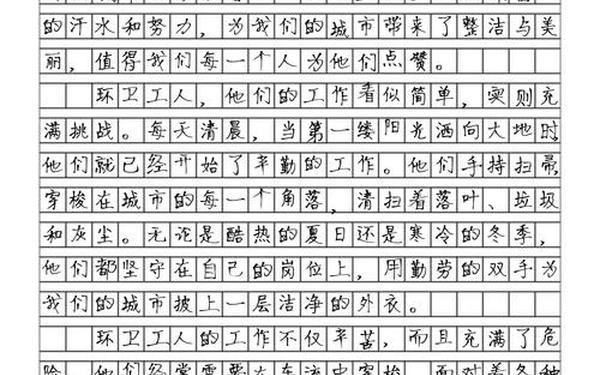 的汗水和努力，为我们的城市带来了整洁与美
丽，值得我们每一个人为他们点赞。
环卫工人，他们的工作看似简单，实则充
满挑战。每天清晨，当第一缕阳光洒向大地时
他们就已经开始了辛勤的工作。他们手持扫帚
穿梭在城市的每一个角落，清扫着落叶、垃圾
和灰尘。无论是酷热的夏日还是寒冷的冬季，
他们都坚守在自己的岗位上，用勤劳的双手为
我们的城市披上一层洁净的外衣。
环卫工人的工作不仅辛苦，而且充满了危
险。他们经常需要在车流中穿梭，面对着各种